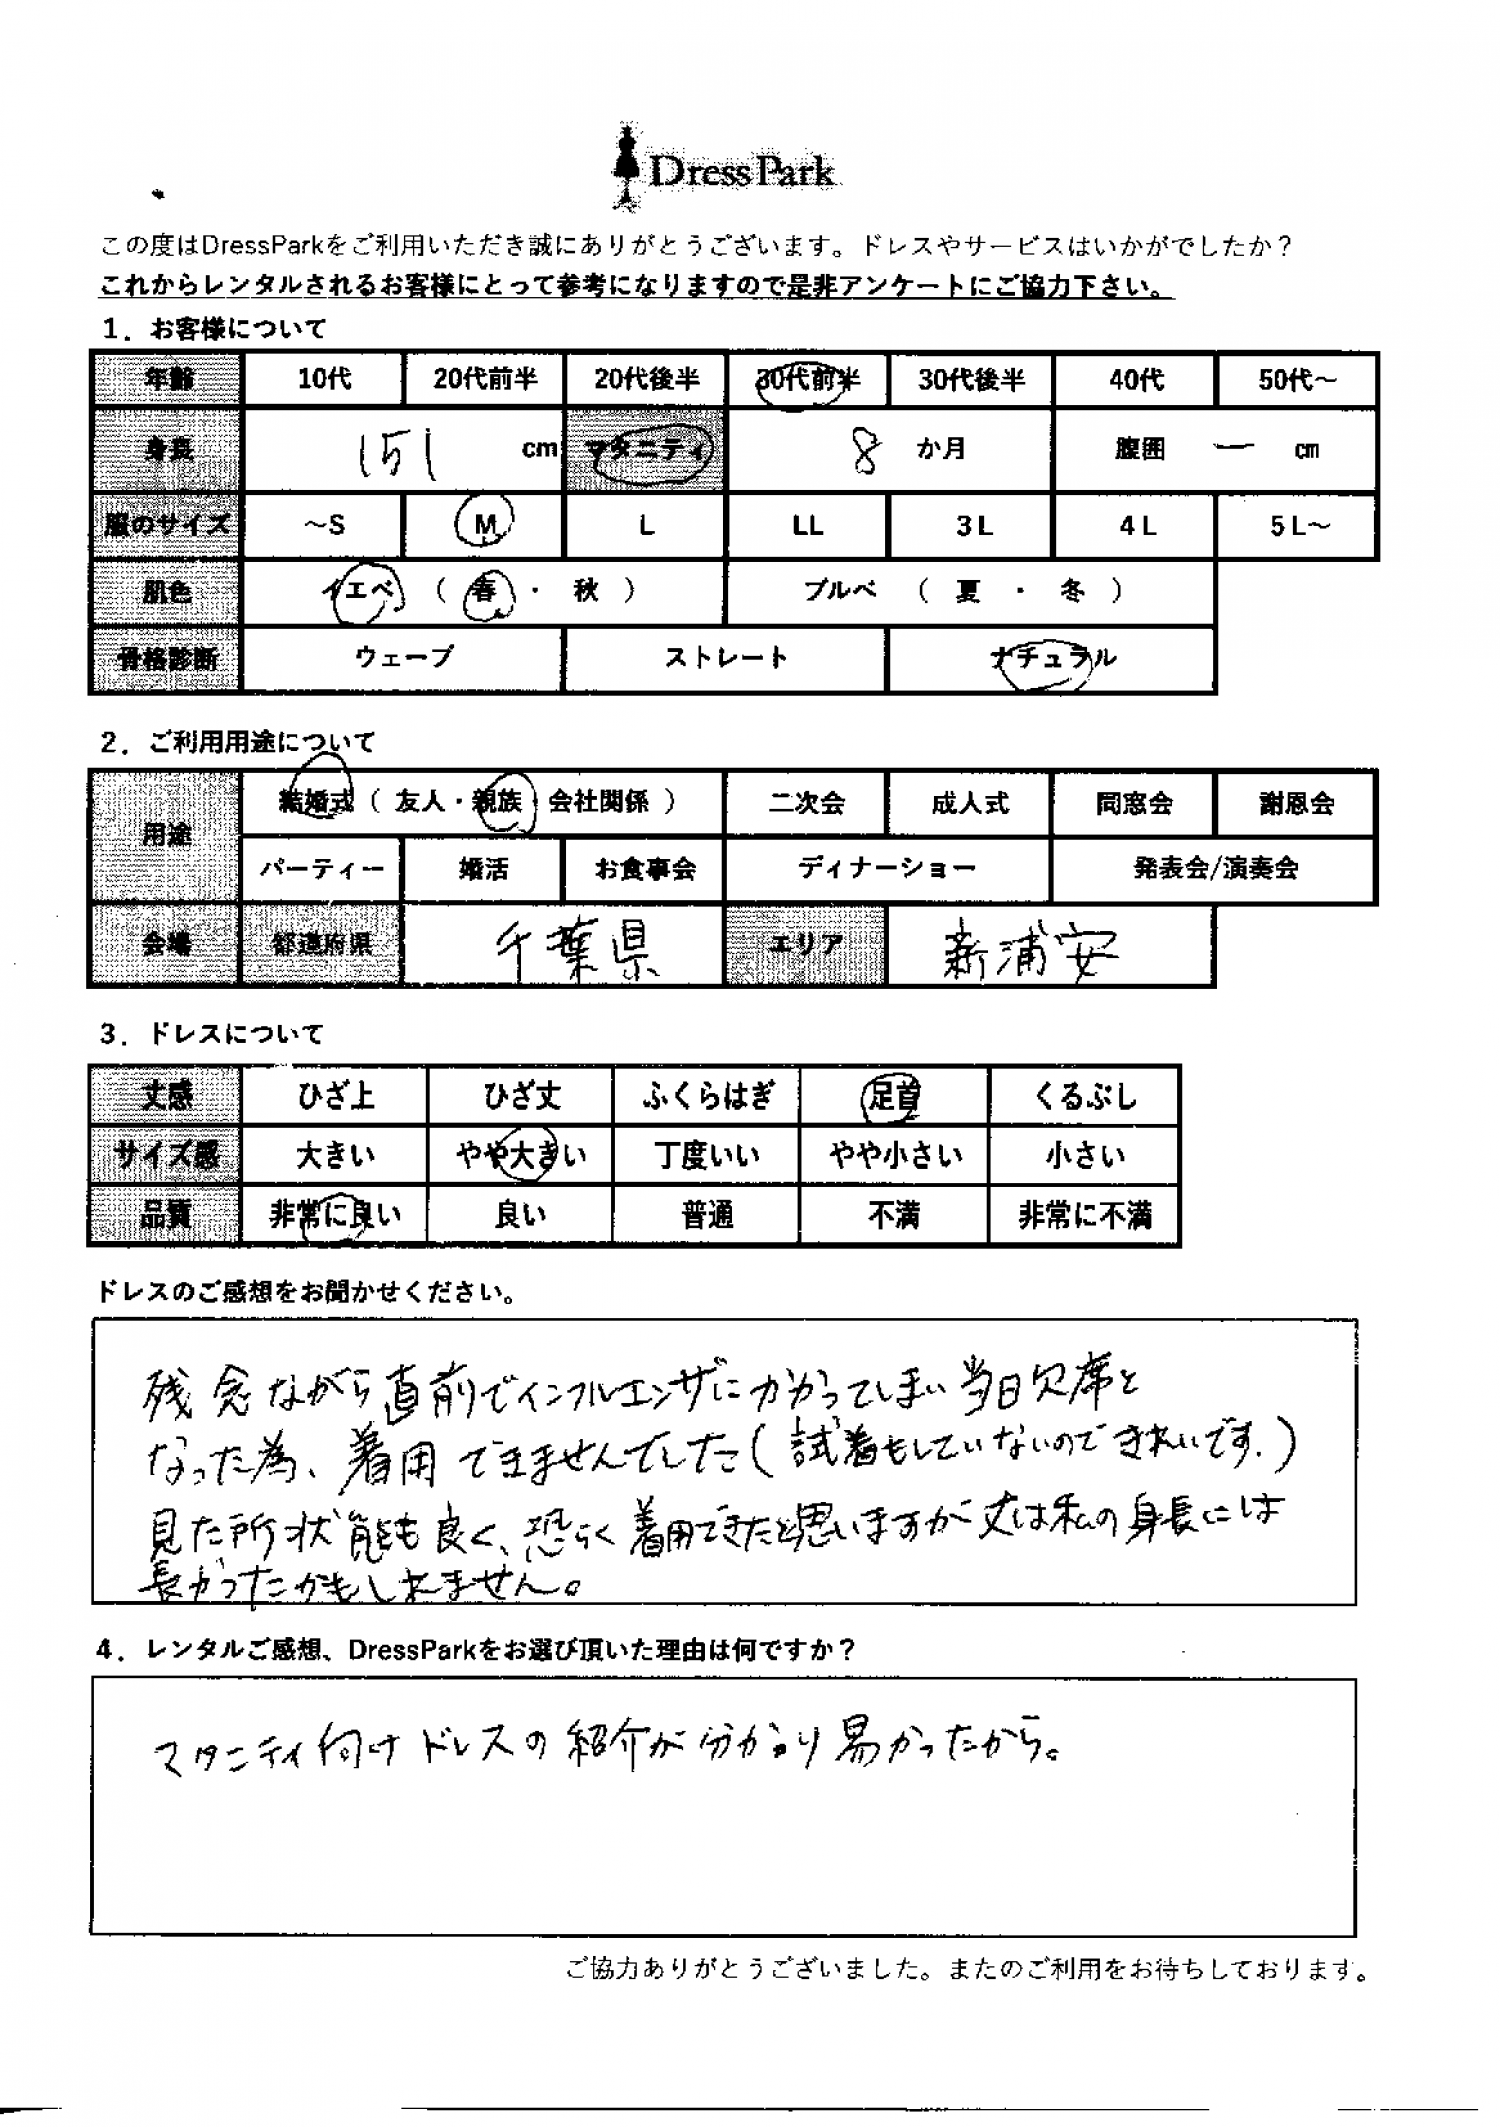 DressPark
この度はDressParkをご利用いただき誠にありがとうございます。ドレスやサービスはいかがでしたか？
これからレンタルされるお客様にとって参考になりますので是非アンケートにご協力下さい。
1．お客様について
年齢 10代 20代前半 20代後半 30代前半 30代後半 40代 50代～
身長 151 cm マタニティ 8 か月 腹囲 ー cm
服のサイズ ～S M L LL 3L 4L 5L～
肌色 イエベ （ 春 ・ 秋 ） ブルベ （ 夏 ・ 冬 ）
骨格診断 ウェーブ ストレート ナチュラル
2．ご利用用途について
用途 結婚式（ 友人・親族・会社関係 ） 二次会 成人式 同窓会 謝恩会
パーティー 婚活 お食事会 ディナーショー 発表会/演奏会
会場 都道府県 千葉県 エリア 新浦安
3．ドレスについて
丈感 ひざ上 ひざ丈 ふくらはぎ 足首 くるぶし
サイズ感 大きい やや大きい 丁度いい やや小さい 小さい
品質 非常に良い 良い 普通 不満 非常に不満
ドレスのご感想をお聞かせください。
残念ながら直前でインフルエンザにかかってしまい当日欠席と
なった為、着用できませんでした(試着もしていないのできれいです.)
見た所状態も良く、恐らく着用できたと思いますが丈は私の身長には
長かったかもしれません。
4．レンタルご感想、DressParkをお選び頂いた理由は何ですか？
マタニティ向けドレスの紹介が分かり易かったから。
ご協力ありがとうございました。またのご利用をお待ちしております。